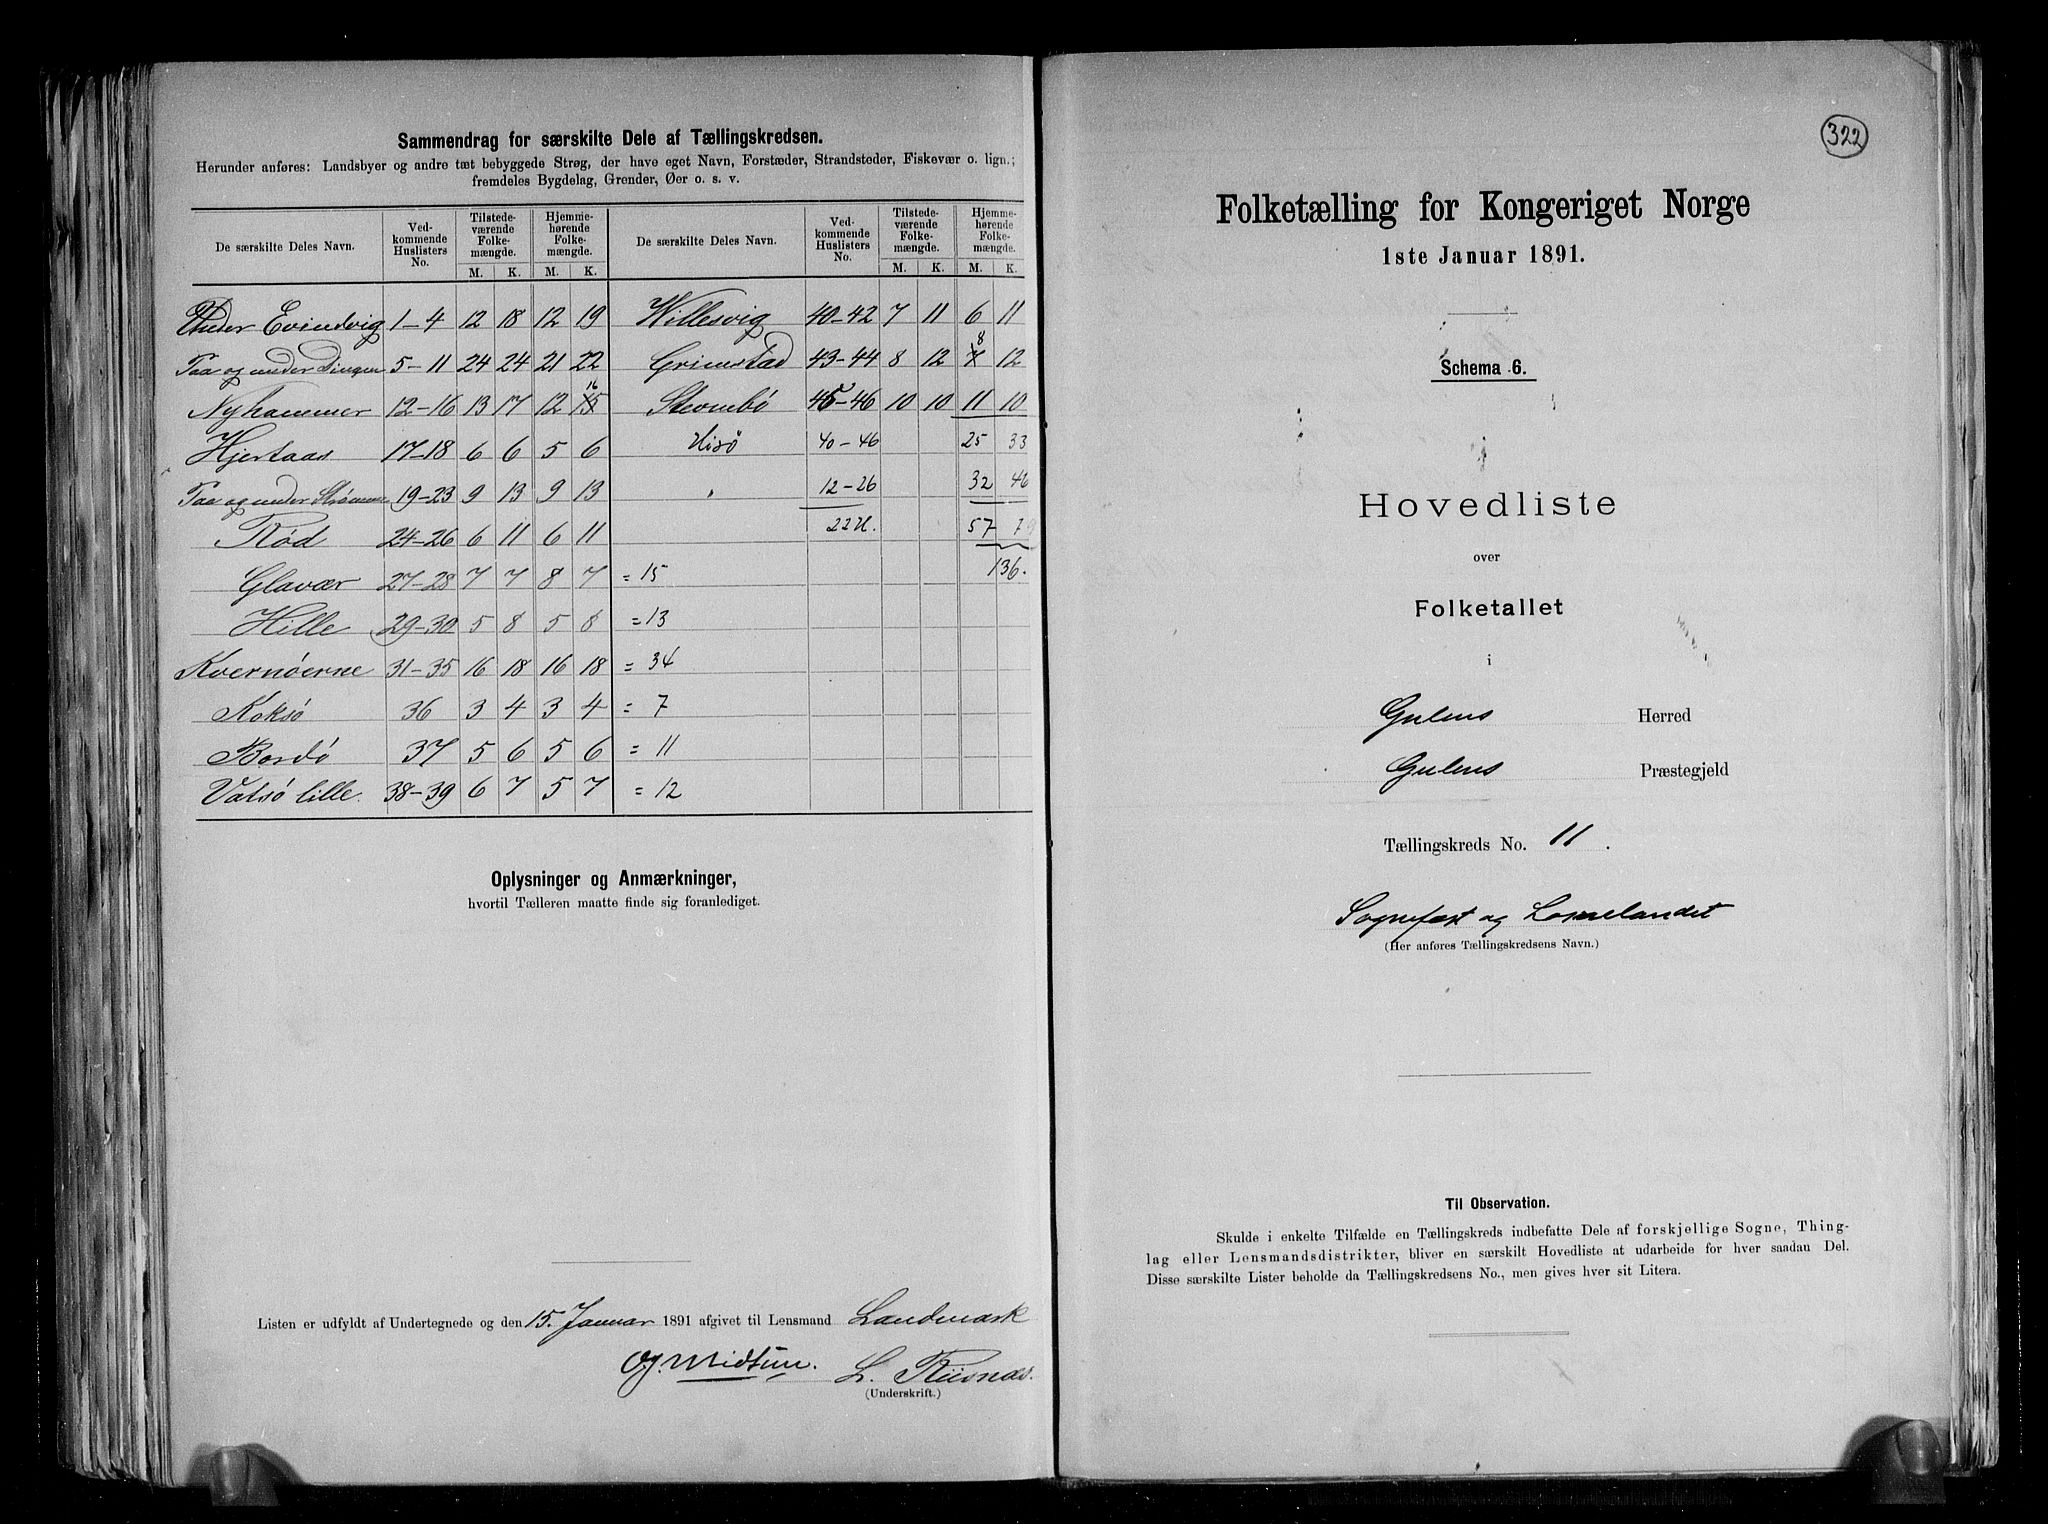 Sammendrag for særskilte Dele af Tællingskredsen.
Herunder anføres: Landsbyer og andre tæt bebyggede Strøg, der have eget Navn, Forstæder, Strandsteder, Fiskevær o. lign.;
fremdeles Bygdelag, Grender, Øer o. s. v.
De særskilte Deles Navn. Vedkommende Huslisters No. Tilstedeværende Folkemængde. M. K. Hjemmehørende Folkemængde. M. K. De særskilte Deles Navn. Vedkommende Huslisters No. Tilstedeværende Folkemængde. M. K. Hjemmehørende Folkemængde. M. K.
Under Evindvig 1-4 12 18 12 19 Willesvig 40-42 7 11 6 11
Paa og under Dingen 5-11 24 24 21 22 Grimstad 43-44 8 12 7 8 12
Nyhammer 12-16 13 17 12 15 16 Strombø 45-46 10 10 11 10
Hjertaas 17-18 6 6 5 6 Hisö 40-46 25 33
Paa og under Strømme 19-23 9 13 9 13 " 12-26 32 46
Röd 24-26 6 11 6 11 22 H. 57 79
Glavær 27-28 7 7 8 7 = 15 136.
Hille 29-30 5 8 5 8 = 13
Kvernöerne 31-35 16 18 16 18 = 34
Koksö 36 3 4 3 4 = 7
Bordö 37 5 6 5 6 = 11
Vatsö lille. 38-39 6 7 5 7 = 12
Oplysninger og Anmærkninger,
hvortil Tælleren maatte finde sig foranlediget.
Listen er udfyldt af Undertegnede og den 15. Januar 1891 afgivet til Lensmand Landmark
Og. Midtun. L. Riisnæs.
(Underskrift.)
322
Folketælling for Kongeriget Norge
1ste Januar 1891.
Schema 6.
Hovedliste
over
Folketallet
i
Gulens Herred
Gulens Præstegjeld
Tællingskreds No. 11.
Sognefæst og Losnelandet
(Her anføres Tællingskredsens Navn.)
Til Observation.
Skulde i enkelte Tilfælde en Tællingskreds indbefatte Dele af forskjellige Sogne, Thing-
lag eller Lensmandsdistrikter, bliver en særskilt Hovedliste at udarbeide for hver saadan Del.
Disse særskilte Lister beholde da Tællingskredsens No., men gives hver sit Litera.